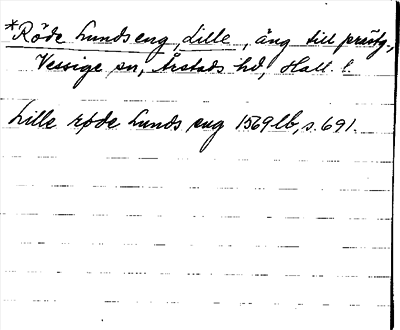 *Röde Lunds eng, Lille, äng till prästg.,
Vessige sn, Årstads hd, Hall. l.
Lille røde Lunds eng 1569 lb, s. 691.